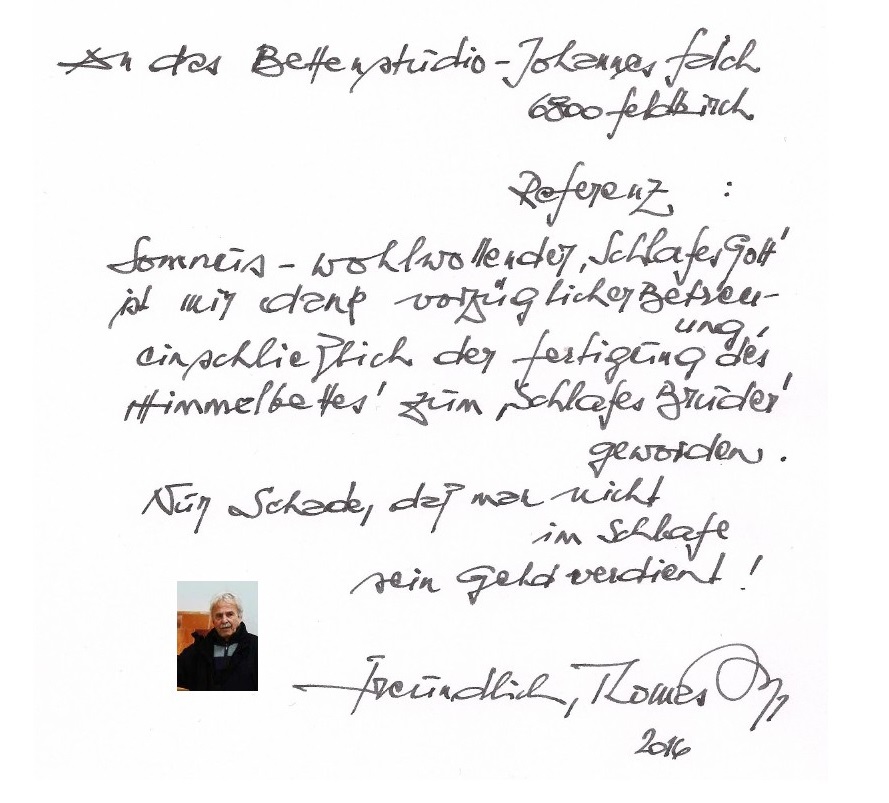 An das Bettenstudio - Johannes Falch
6800 Feldkirch
Referenz :
Somnus - wohlwollender ,Schlafes Gott'
ist mir dank vorzüglicher Betreu-
ung,
einschließlich der Fertigung des
,Himmelbettes' zum ,Schlafes Bruder'
geworden.
Nur Schade, daß man nicht
im Schlafe
sein Geld verdient!
Freundlich, Thomas
2016